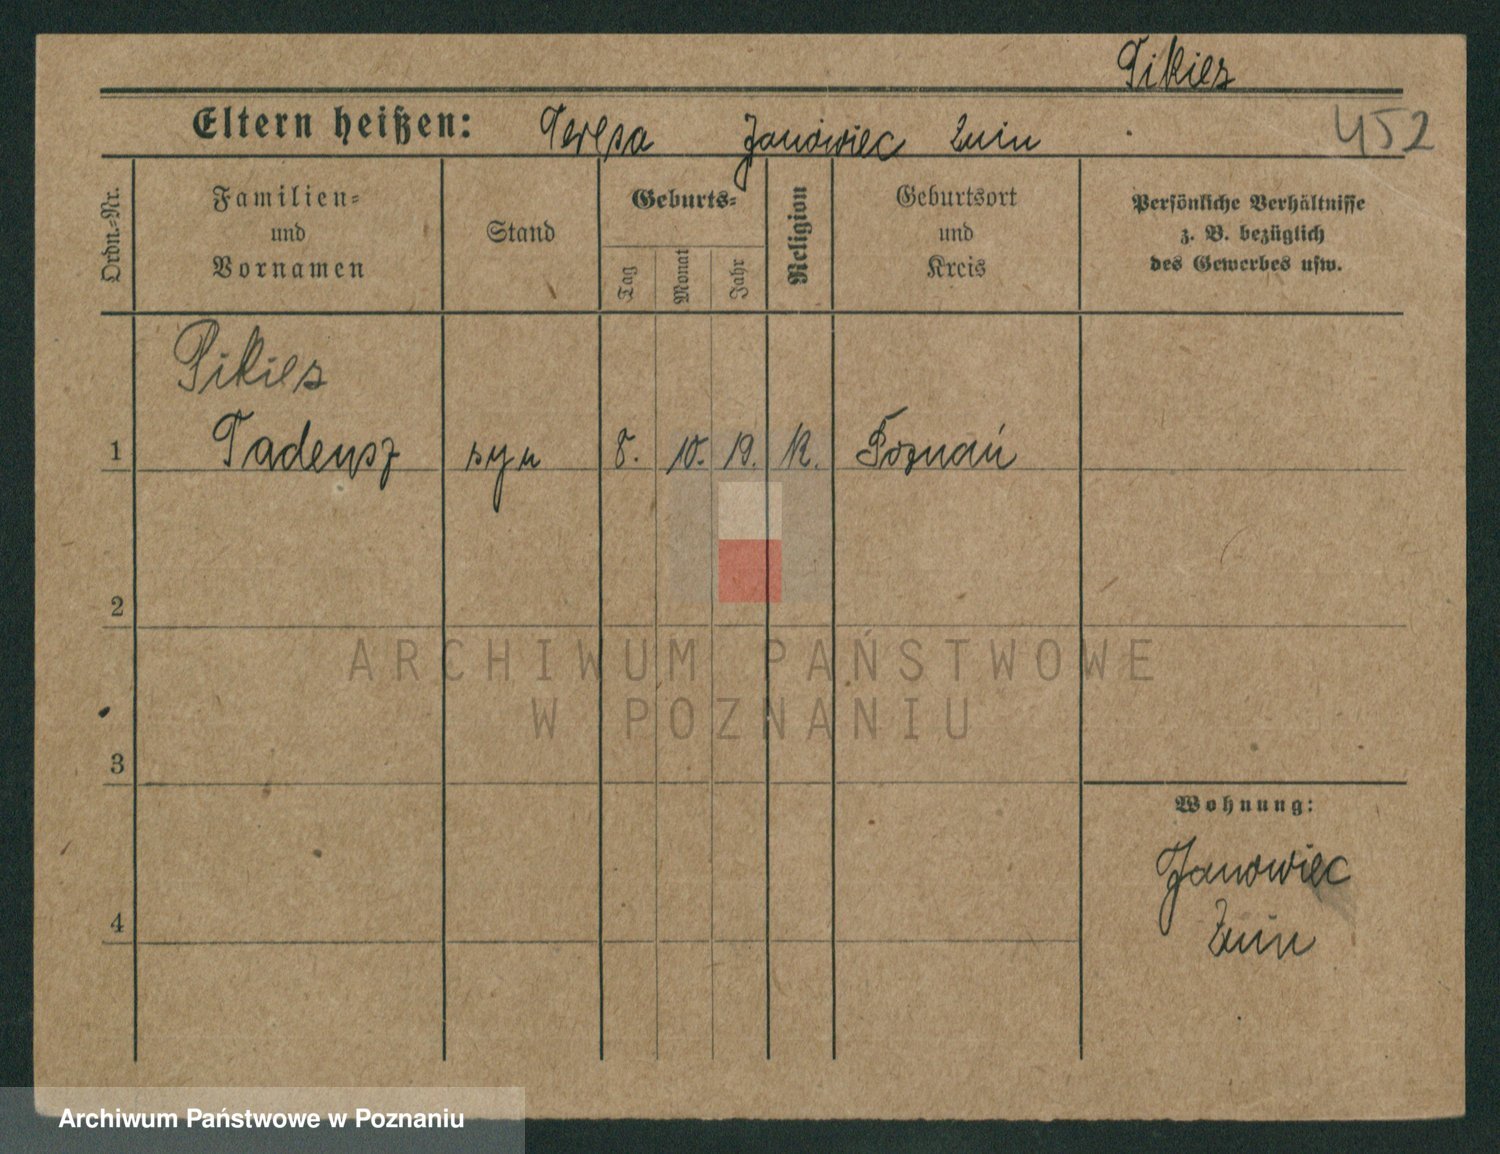 Pikies
Eltern heißen: Teresa Janowiec Żnin
452
Ordn.-Nr.
Familien- und Vornamen
Stand
Geburts-
Tag
Monat
Jahr
Religion
Geburtsort und Kreis
Persönliche Verhältnisse
z. B. bezüglich
des Gewerbes usw.
Pikies
1 Tadeusz syn 8. 10. 19. K. Poznań
2
ARCHIWUM PAŃSTWOWE
W POZNANIU
3
Wohnung:
Janowiec
4
Żnin
Archiwum Państwowe w Poznaniu